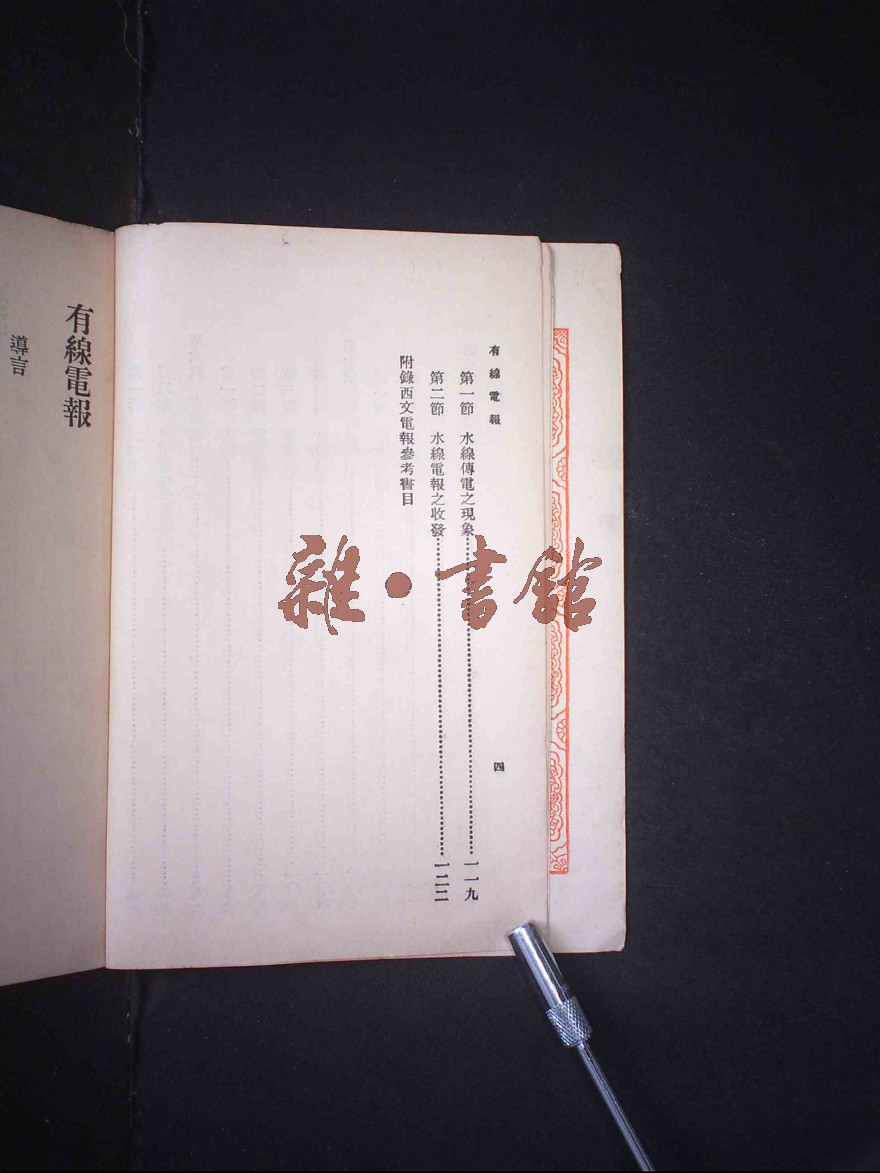 有線電報
第一節　水線傳電之現象……一一九
第二節　水線電報之收發……一二二
附錄西文電報參考書目
四
有線電報
導言
雜·書館